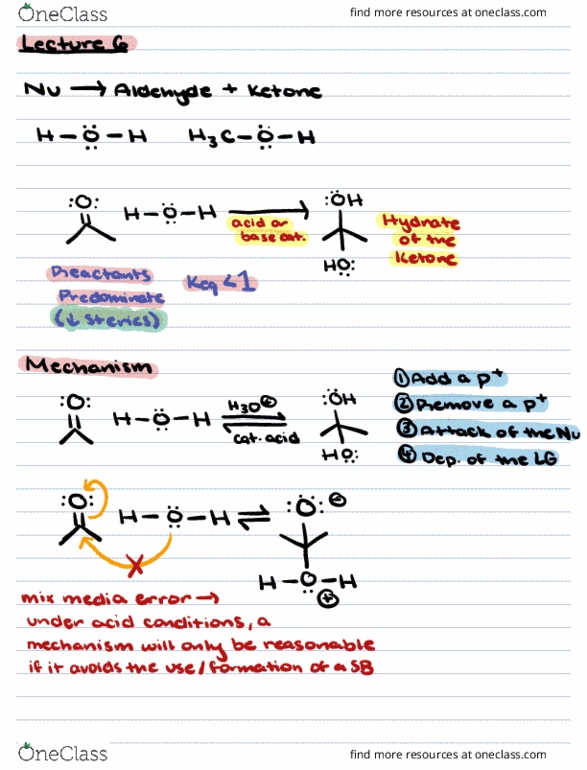 OneClass
find more resources at oneclass.com
Lecture 6
Nu → Aldehyde + Ketone
H–Ö–H H₃C–Ö–H
:O: H–Ö–H acid or base cat. :ÖH HO: Hydrate of the Ketone
Reactants
Predominate
(↓ sterics)
Keq < 1
Mechanism
:O: H–Ö–H H₃O⊕ cat. acid :ÖH HO:
① Add a p⁺
② Remove a p⁺
③ Attack of the Nu
④ Dep. of the LG
:O: H–Ö–H ⇌ :Ö: ⊖
H–O–H
⊕
mix media error →
under acid conditions, a
mechanism will only be reasonable
if it avoids the use/formation of a SB
OneClass
find more resources at oneclass.com